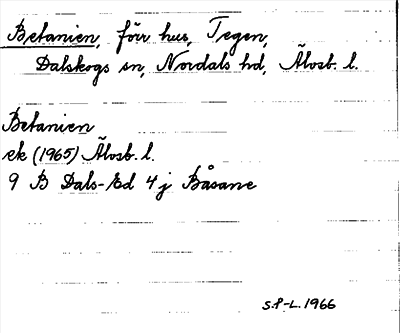 Betanien, förr hus, Tegen,
Dalskogs sn, Nordals hd, Älvsb. l.
Betanien
ek (1965) Älvsb. l.
9 B Dals-Ed 4 j Båsane
S.P-L. 1966